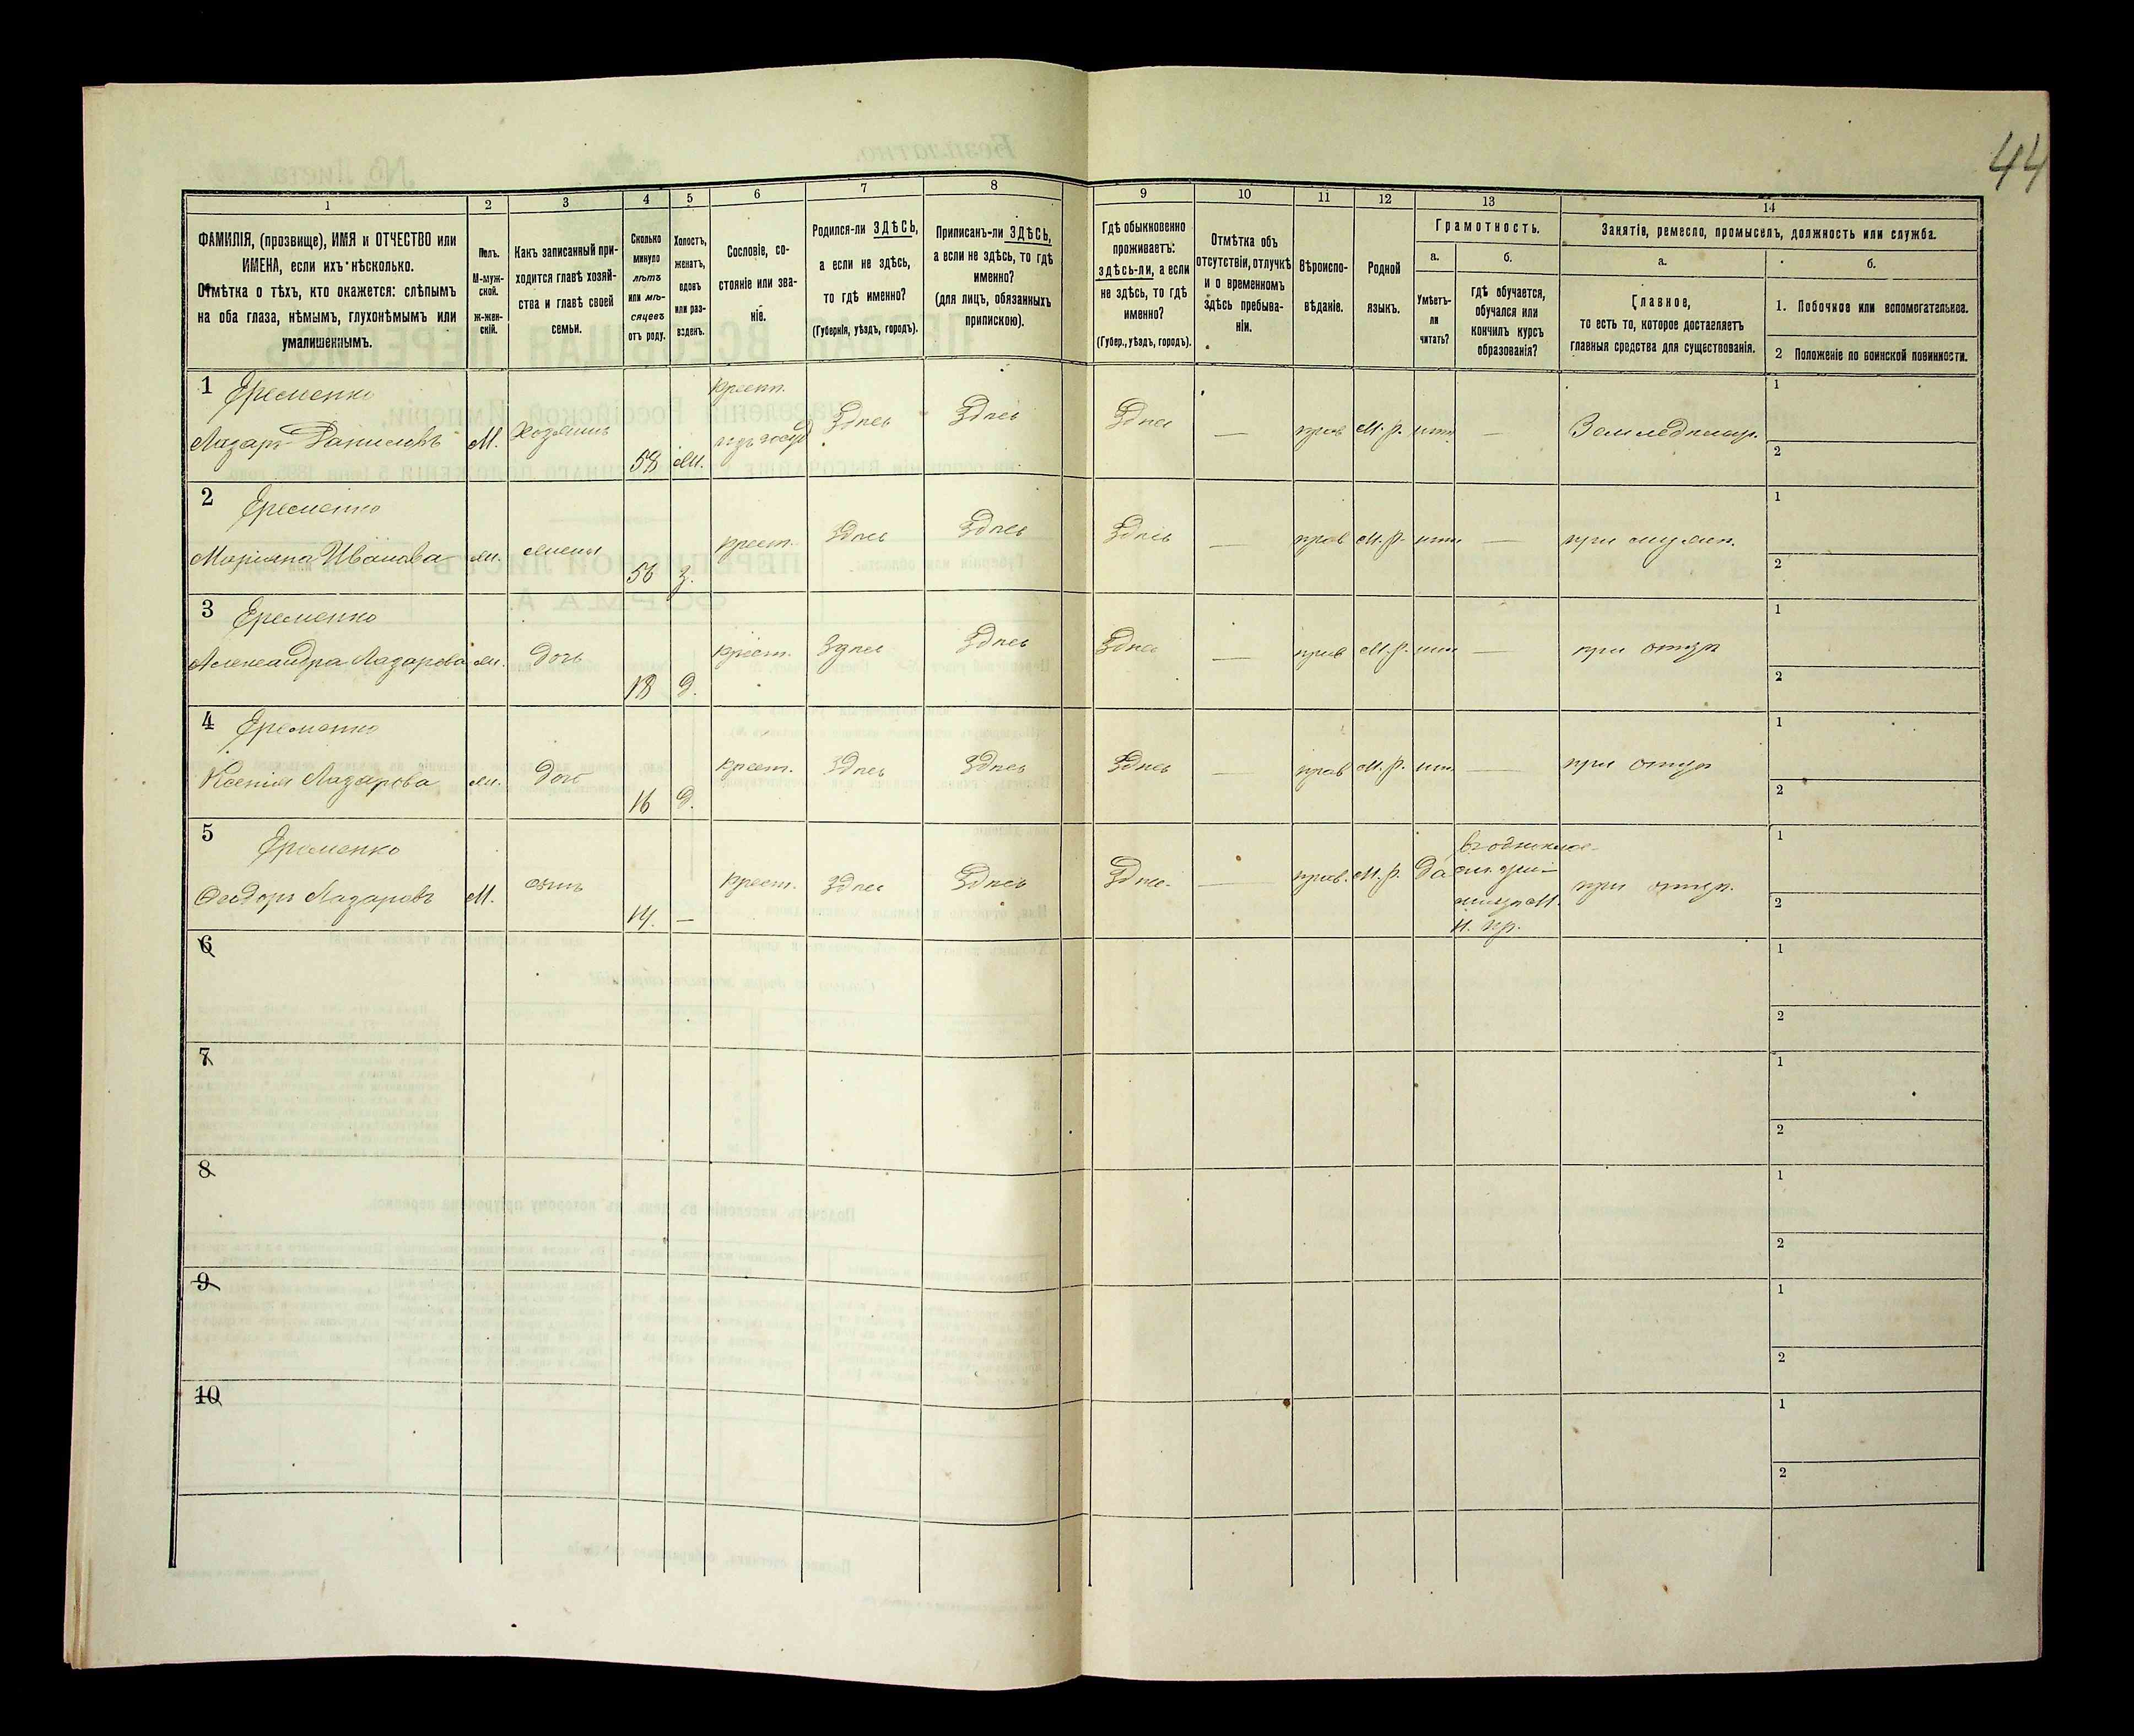 44
1
2
3
4
5
6
7
8
9
10
11
12
13
14
ФАМИЛІЯ, (прозвище), ИМЯ и ОТЧЕСТВО или
ИМЕНА, если ихъ нѣсколько.
Отмѣтка о тѣхъ, кто окажется: слѣпымъ
на оба глаза, нѣмымъ, глухонѣмымъ или
умалишеннымъ.
Полъ.
М-муж-
ской.
ж-жен-
скій.
Какъ записанный при-
ходится главѣ хозяй-
ства и главѣ своей
семьи.
Сколько
минуло
лѣтъ
или мѣ-
сяцевъ
отъ роду.
Холостъ,
женатъ,
вдовъ
или раз-
веденъ.
Сословіе, со-
стояніе или зва-
ніе.
Родился-ли ЗДѢСЬ,
а если не здѣсь,
то гдѣ именно?
(Губернія, уѣздъ, городъ).
Приписанъ-ли ЗДѢСЬ,
а если не здѣсь, то гдѣ
именно?
(для лицъ, обязанныхъ
припискою).
Гдѣ обыкновенно
проживаетъ:
здѣсь-ли, а если
не здѣсь, то гдѣ
именно?
(Губер., уѣздъ, городъ).
Отмѣтка объ
отсутствіи, отлучкѣ
и о временномъ
здѣсь пребыва-
ніи.
Вѣроиспо-
вѣданіе.
Родной
языкъ.
Грамотность.
а.
Умѣетъ-
ли
читать?
б.
гдѣ обучается,
обучался или
кончилъ курсъ
образованія?
Занятіе, ремесло, промыселъ, должность или служба.
а.
Главное,
то есть то, которое доставляетъ
главныя средства для существованія.
б.
1. Побочное или вспомогательное.
2 Положеніе по воинской повинности.
1 Еременко
Лазарь Даниловъ
М.
Хозяинъ
58
крест.
Здѣсь
Здѣсь
Здѣсь
—
прав
М. р.
—
1
2
2 Еременко
Маріяна Иванова
жена
56
з.
крест.
Здѣсь
Здѣсь
Здѣсь
—
прав
М. р.
—
1
2
3 Еременко
Александра Лазарева
Дочь
18
д.
крест.
Здѣсь
Здѣсь
Здѣсь
—
прав
М. р.
—
при отцѣ
1
2
4 Еременко
Ксенія Лазарева
Дочь
16
д.
крест.
Здѣсь
Здѣсь
Здѣсь
—
прав
М. р.
—
при отцѣ
1
2
5 Еременко
Ѳеодоръ Лазаревъ
М.
сынъ
14.
—
крест.
Здѣсь
Здѣсь
Здѣсь
—
прав.
М. р.
Да
н. пр.
при отцѣ.
1
2
6
1
2
7
1
2
8
1
2
9
1
2
10
1
2